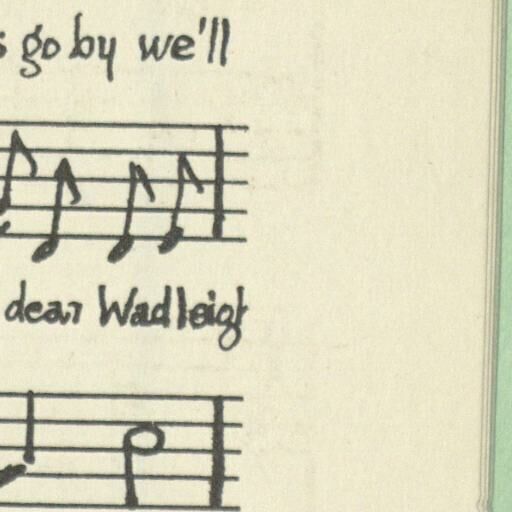 s go by we'll
dear Wadleigh